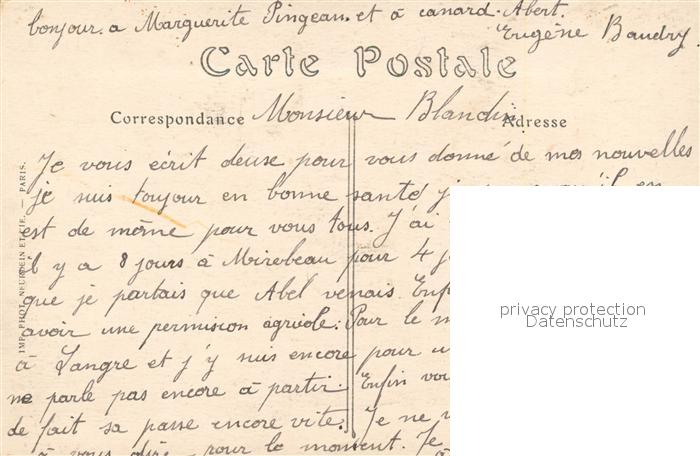 bonjour. a Marguerite Pingeau. et à canard. Abert.
Eugène Baudry.
Carte Postale
Correspondance Adresse
Monsieur Blandin
Je vous écrit deuse pour vous donné de mes nouvelles
je suis toujour en bonne santé
est de même pour vous tous. J'ai
il y a 8 jours à Mirebeau pour 4
que je partais que Abel venais.
avoir une permision agricole. Pour le
à Langre et j'y suis encore pour
ne parle pas encore à partir. Enfin
de fait sa passe encore vite. Je ne
à vous dire pour le moment. Je
IMP. PHOT. NEURDEIN ET CIE. — PARIS.
privacy protection
Datenschutz